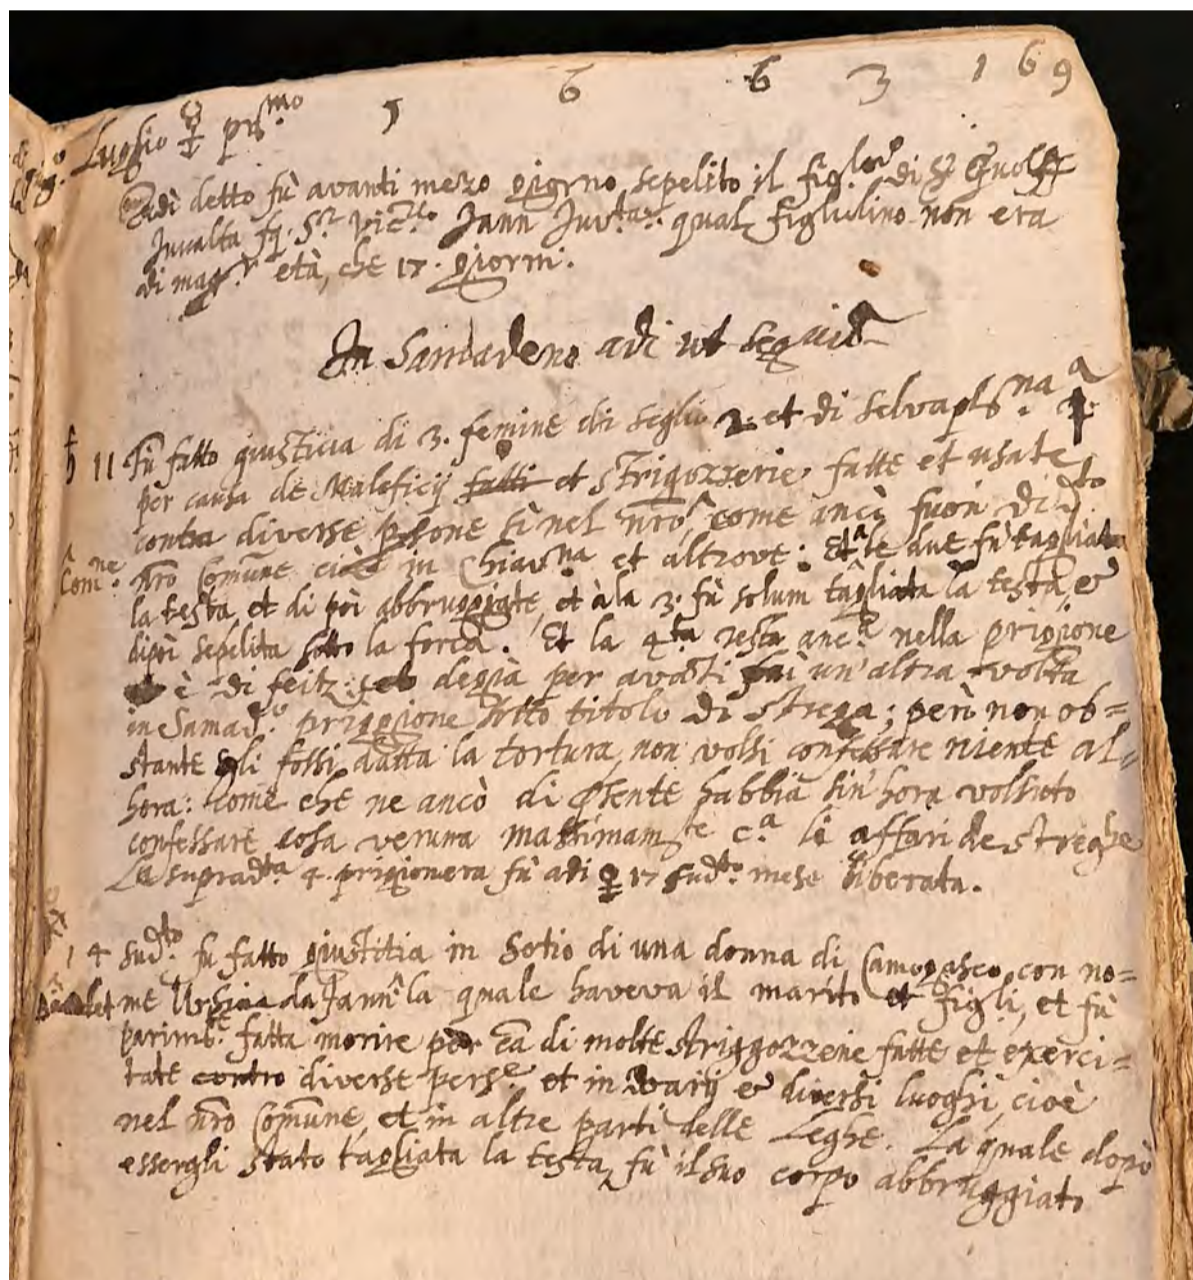 1 6 6 3 169
Luglio ♀ pr̃s.mo
Adì detto fù avanti mezo giorno sepelito il figl. di
Juvalta fq. S.r Vic.rio Jann Juv.ta: qual figliulino non era
di mag.r età, che 17. giorni.
In Samadeno adi ut seguit
♄ 11 Fù fatto giustitia di 3. femine di seglio 2. et di selvapls.na 1.a
per causa de Maleficij fatti et strigozzerie, fatte et usate
contra diverse psone sì nel nrõ, come ancò fuori di d.to
Com.ne nrõ Comune cioè in Chiav.na et altrove: Et a le due fù tagliata
la testa, et di poi abbruggiate, et à la 3. fù solum tagliata la testa, e
dipoi sepelita sotto la forca. Et la 4.ta resta anc.a nella prigione
è di feitz: degià per avãti fui un'altra volta
in Samad.o priggione sotto titolo di strega; però non ob=
stante gli fossi datta la tortura, non volsi confessare niente al=
hora: come che ne ancò di psente habbia sin'hora volsuto
confessare cosa veruna massimam.te c.a li affari de streghe
La suprad.ta 4. prigionera fù adi ♀ 17 sud.to mese liberata.
14 sud.to fu fatto giustitia in Sotio di una donna di Camogasco, con no=
me Ursina da Jann.la quale haveva il marito et figli, et fù
parim.te fatta morire per cã di molte striggozzerie fatte et exerci=
tate contro diverse pers.e et in varij e diversi luoghi, cioè
nel nrõ Comune, et in altre parti delle Leghe. La quale dopò
essergli stato tagliata la testa, fù il suo corpo abbruggiato